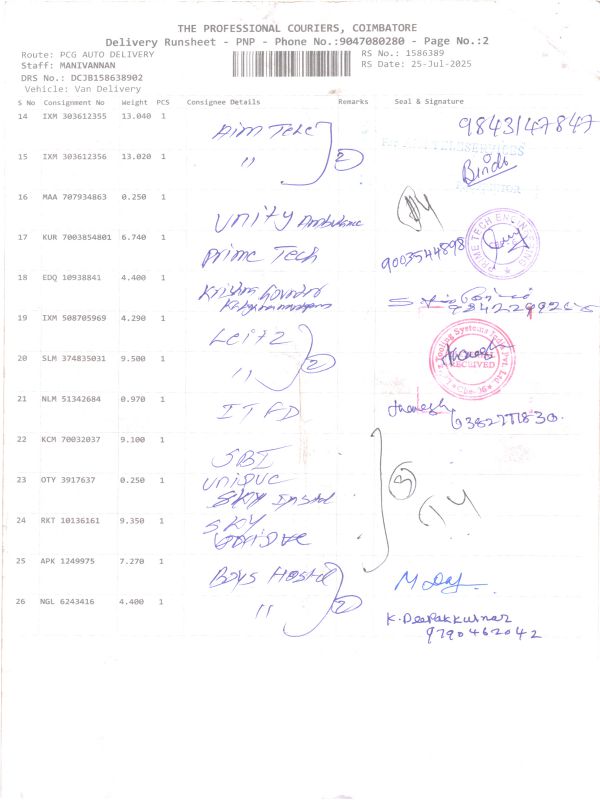 THE PROFESSIONAL COURIERS, COIMBATORE
Delivery Runsheet - PNP - Phone No.:9047080280 - Page No.:2
Route: PCG AUTO DELIVERY RS No.: 1586389
Staff: MANIVANNAN RS Date: 25-Jul-2025
DRS No.: DCJB158638902
Vehicle: Van Delivery
S No Consignment No Weight PCS Consignee Details Remarks Seal & Signature
14 IXM 303612355 13.040 1 Aim Tele 9843147847
15 IXM 303612356 13.020 1 " 2 Bindu
16 MAA 707934863 0.250 1 Unity Ambulance
17 KUR 7003854801 6.740 1 Prime Tech 9003544898 PRIME TECH ENGINEERING
18 EDQ 10938841 4.400 1 Krishna Govinder
19 IXM 508705969 4.290 1 Leitz
20 SLM 374835031 9.500 1 " 2 Tooling Systems India Pvt. Ltd RECEIVED
21 NLM 51342684 0.970 1 ITFD
22 KCM 70032037 9.100 1 SBI
23 OTY 3917637 0.250 1 Unique 3
24 RKT 10136161 9.350 1 SKY
25 APK 1249975 7.270 1 Boys Hostel
26 NGL 6243416 4.400 1 " 2 K. Deepakkumar
9790462042